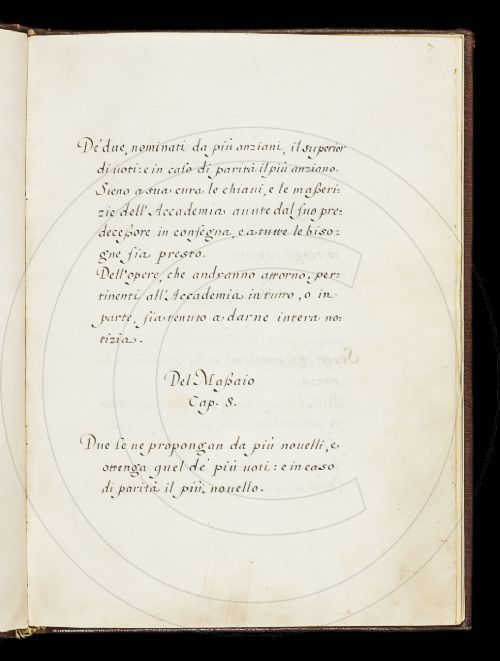 De' due, nominati da più anziani, il superior
di uoti: e in caso di parità il più anziano.
Sieno a sua cura le chiaui, e le maßeri:
zie dell'Accademia auute dal suo pre:
deceßore in consegna, e a tutte le biso:
gne sia presto.
Dell'opere, che andranno attorno, per:
tinenti all'Accademia in tutto, o in
parte, sia tenuto a darne intera no:
tizia.
Del Maßaio
Cap. 8.
Due se ne propongan da più nouelli, e
ottenga quel de' più uoti: e in caso
di parità il più nouello.